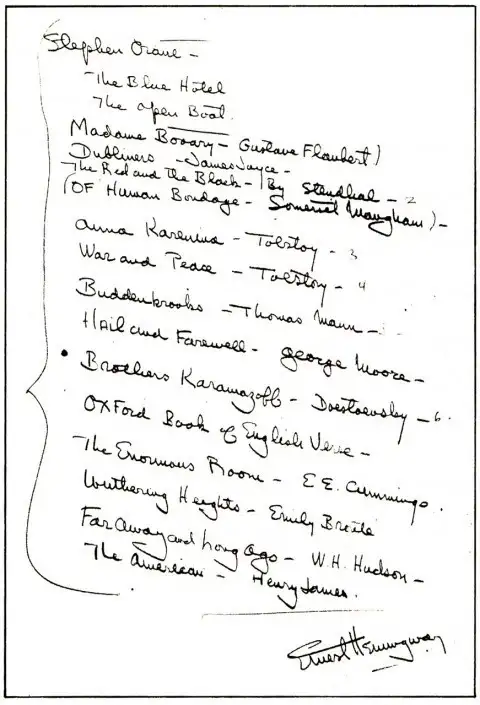 Stephen Crane -
The Blue Hotel
The Open Boat
Madame Bovary - Gustave Flaubert)
Dubliners - James Joyce -
The Red and the Black - By Stendhal - 2
(OF Human Bondage - Somerset Maugham) -
Anna Karenina - Tolstoy - 3
War and Peace - Tolstoy - 4
Buddenbrooks - Thomas Mann -
Hail and Farewell - George Moore -
Brothers Karamazoff - Doestoevsky - 6.
OXFord Book of English Verse -
The Enormous Room - E E. Cummings.
Wuthering Heights - Emily Bronte
Far Away and Long Ago - W.H. Hudson -
The American - Henry James.
Ernest Hemingway